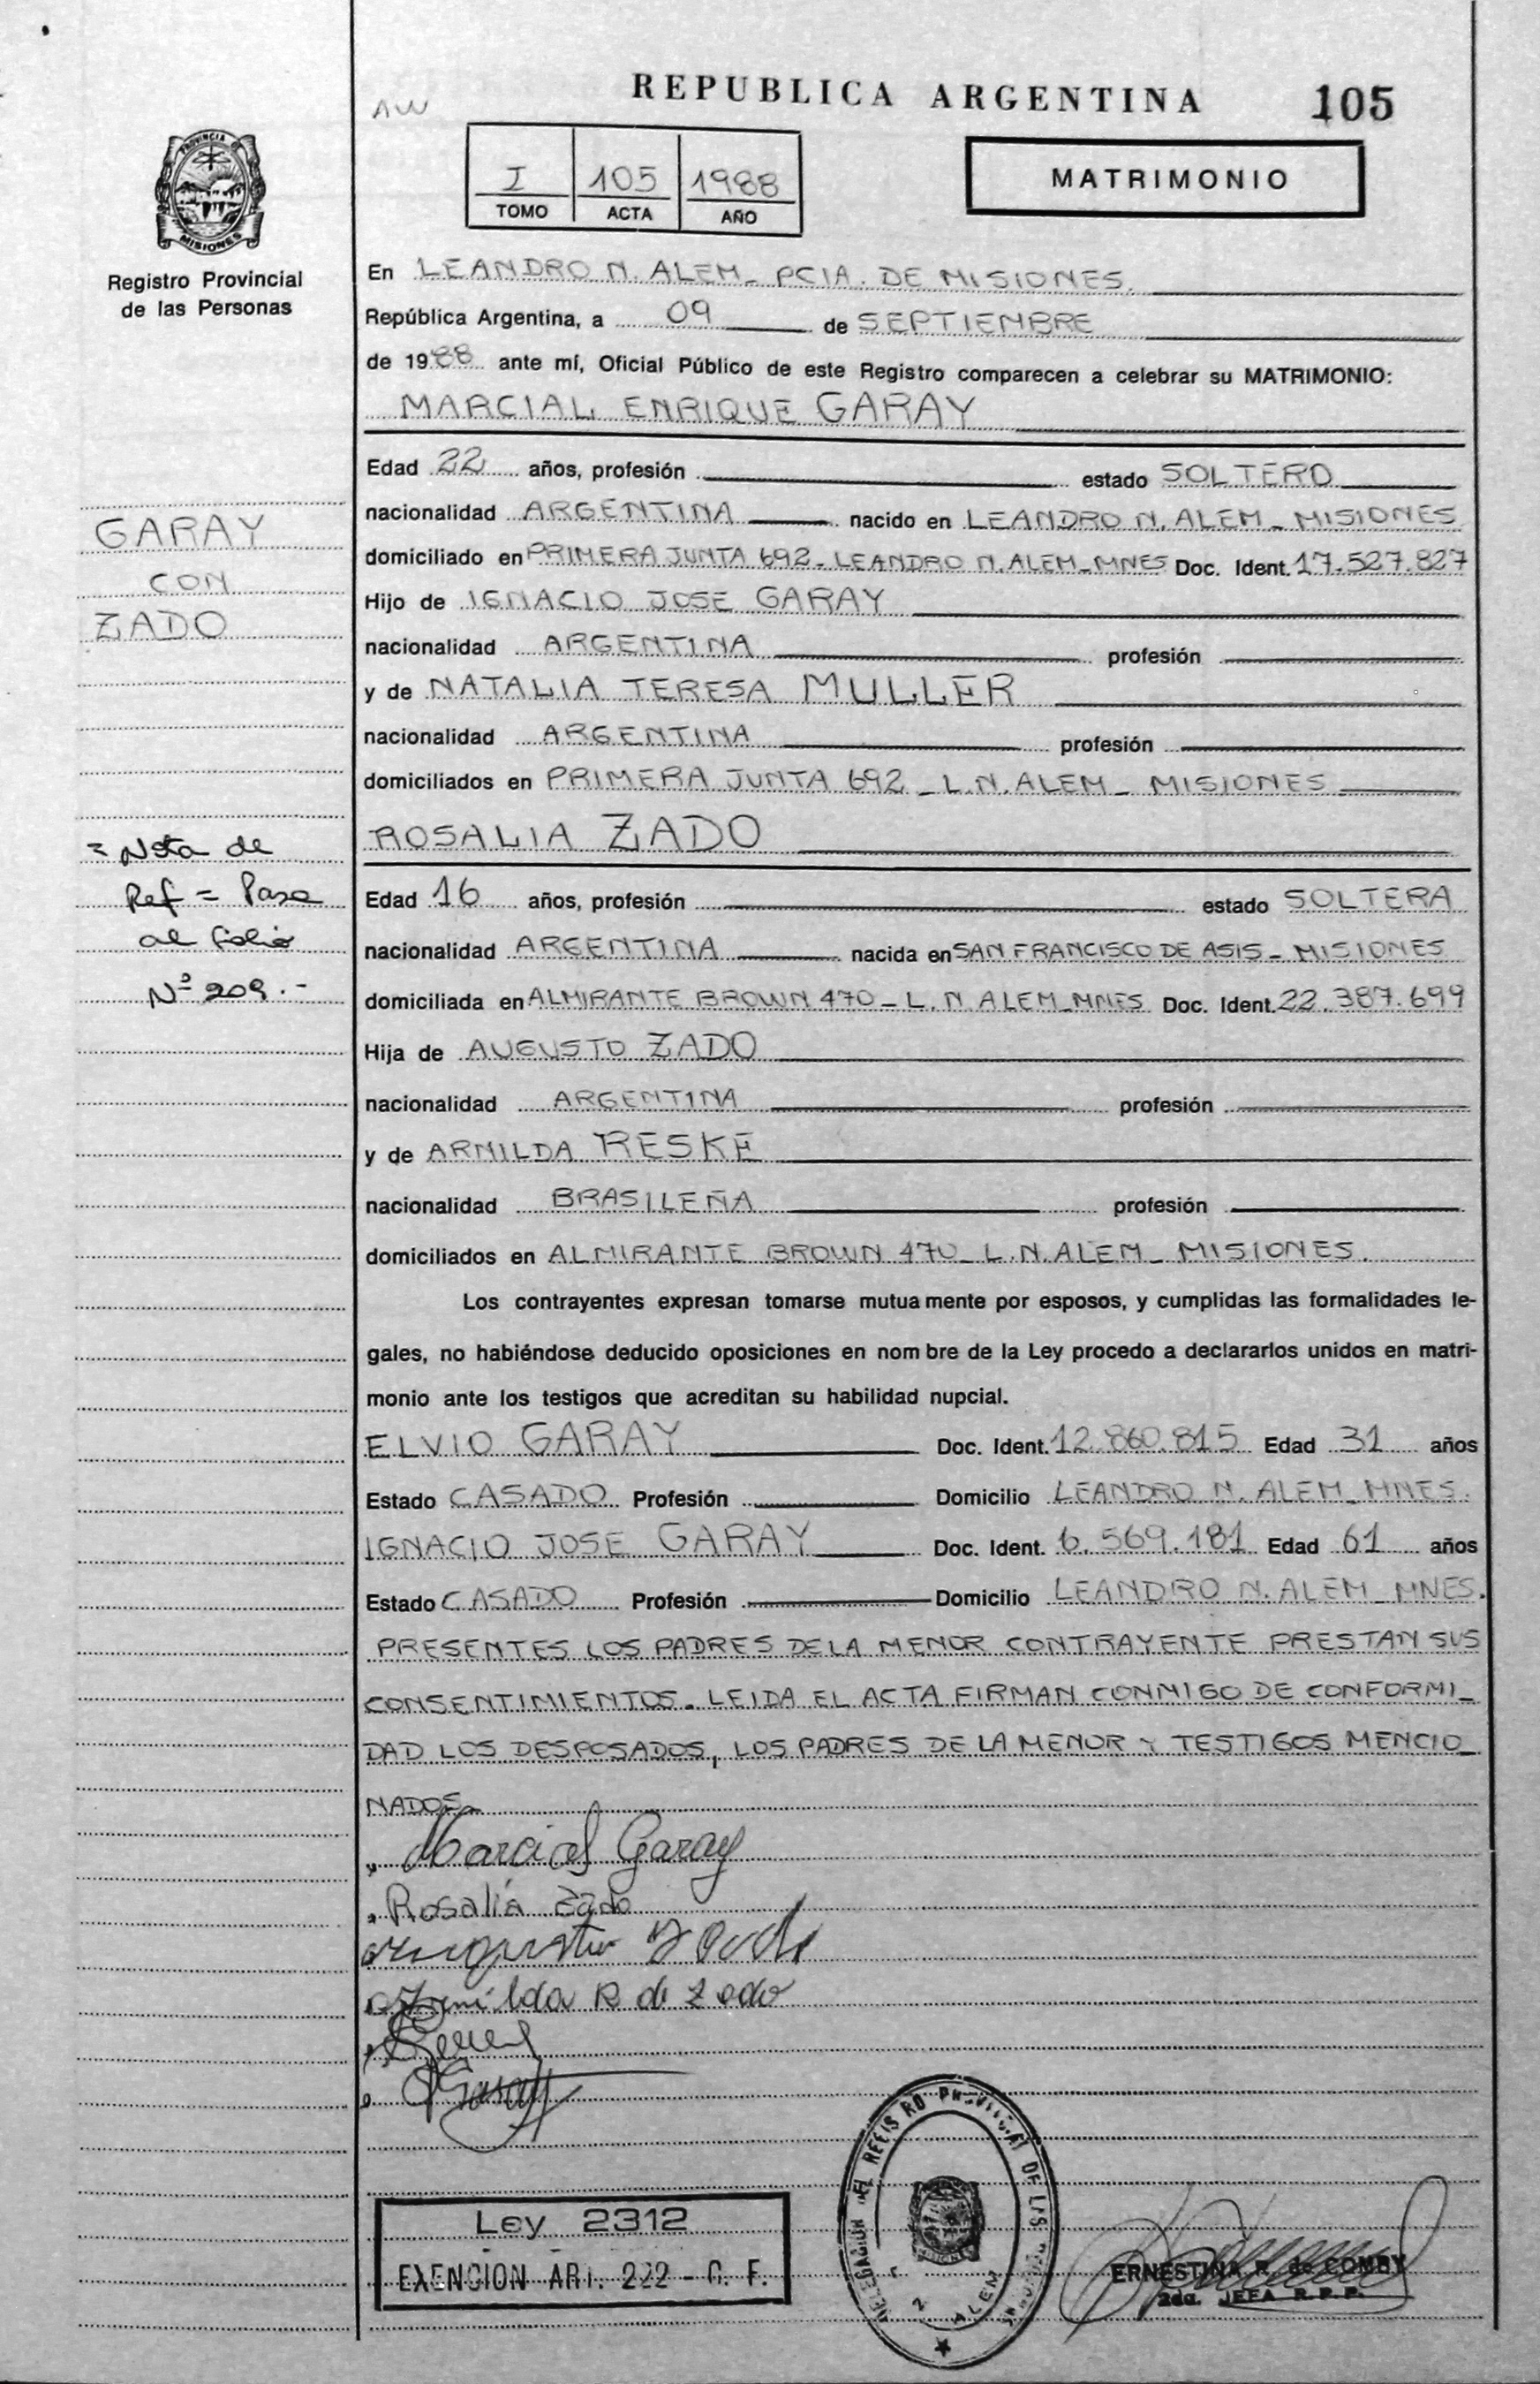 AW
REPUBLICA ARGENTINA
105
PROVINCIA DE
MISIONES
Registro Provincial
de las Personas
I 105 1988
TOMO ACTA AÑO
MATRIMONIO
En LEANDRO N. ALEM_ PCIA. DE MISIONES.
República Argentina, a 09 de SEPTIEMBRE
de 1988 ante mí, Oficial Público de este Registro comparecen a celebrar su MATRIMONIO:
MARCIAL ENRIQUE GARAY
Edad 22 años, profesión estado SOLTERO
nacionalidad ARGENTINA nacido en LEANDRO N. ALEM_ MISIONES
domiciliado en PRIMERA JUNTA 692_ LEANDRO N. ALEM_MNES Doc. Ident. 17.527.827
Hijo de IGNACIO JOSE GARAY
nacionalidad ARGENTINA profesión
y de NATALIA TERESA MULLER
nacionalidad ARGENTINA profesión
domiciliados en PRIMERA JUNTA 692_ L.N. ALEM_ MISIONES
GARAY
CON
ZADO
ROSALIA ZADO
Edad 16 años, profesión estado SOLTERA
nacionalidad ARGENTINA nacida en SAN FRANCISCO DE ASIS_ MISIONES
domiciliada en ALMIRANTE BROWN 470_ L. N. ALEM_MNES Doc. Ident. 22.387.699
Hija de AUGUSTO ZADO
nacionalidad ARGENTINA profesión
y de ARNILDA RESKE
nacionalidad BRASILEÑA profesión
domiciliados en ALMIRANTE BROWN 470_ L.N. ALEM_ MISIONES.
= Nota de
Ref = Pasa
al folio
Nº 209.-
Los contrayentes expresan tomarse mutuamente por esposos, y cumplidas las formalidades le-
gales, no habiéndose deducido oposiciones en nombre de la Ley procedo a declararlos unidos en matri-
monio ante los testigos que acreditan su habilidad nupcial.
ELVIO GARAY Doc. Ident. 12.860.815 Edad 31 años
Estado CASADO Profesión Domicilio LEANDRO N. ALEM_MNES.
IGNACIO JOSE GARAY Doc. Ident. 6.569.181 Edad 61 años
Estado CASADO Profesión Domicilio LEANDRO N. ALEM_MNES.
PRESENTES LOS PADRES DE LA MENOR CONTRAYENTE PRESTAN SUS
CONSENTIMIENTOS_ LEIDA EL ACTA FIRMAN CONMIGO DE CONFORMI_
DAD LOS DESPOSADOS, LOS PADRES DE LA MENOR Y TESTIGOS MENCIO_
NADOS_
Marcial Garay
Rosalia Zado
Augusto Zado
Armilda R de Zado
Garay
Ley 2312
EXENCION ART. 222 - C. F.
DELEGACION DEL REGISTRO PROVINCIAL DE LAS
ALEM
ERNESTINA R. de COMBY
2da. JEFA R.P.P.